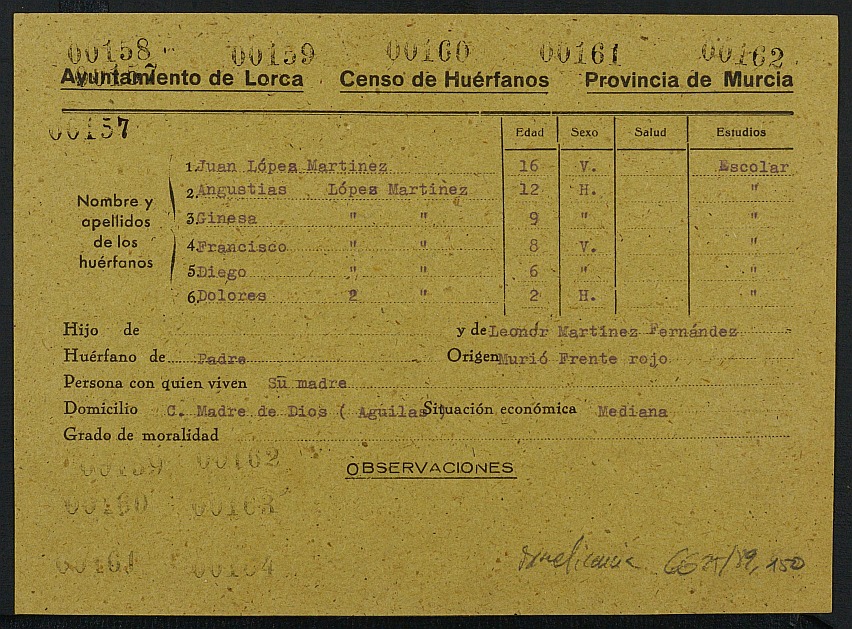 00158 00159 00160 00161 00162
Ayuntamiento de Lorca Censo de Huérfanos Provincia de Murcia
00157
Edad Sexo Salud Estudios
Nombre y apellidos de los huérfanos
1. Juan López Martinez 16 V. Escolar
2. Angustias López Martinez 12 H. "
3. Ginesa " " 9 " "
4. Francisco " " 8 V. "
5. Diego " " 6 " "
6. Dolores 2 " 2 H. "
Hijo de y de Leonor Martinez Fernández
Huérfano de Padre Origen Murió Frente rojo
Persona con quien viven Su madre
Domicilio C. Madre de Dios ( Aguilas ) Situación económica Mediana
Grado de moralidad
00159 00162
OBSERVACIONES
00160 00163
00161 00164